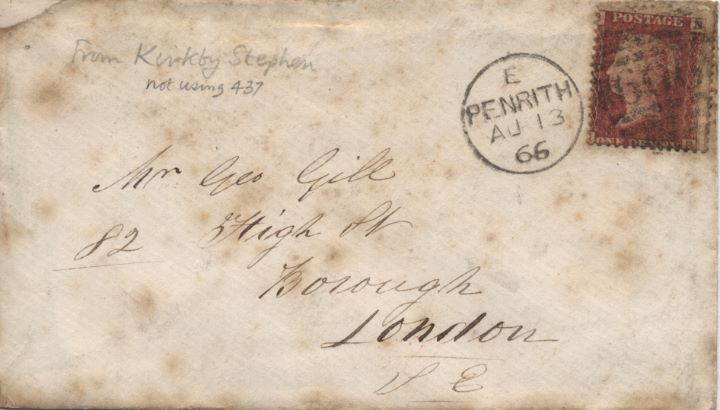 From Kirkby Stephen
not using 437
E
PENRITH
AU 13
66
POSTAGE
Mr Geo Gill
82 High St
Borough
London
S E